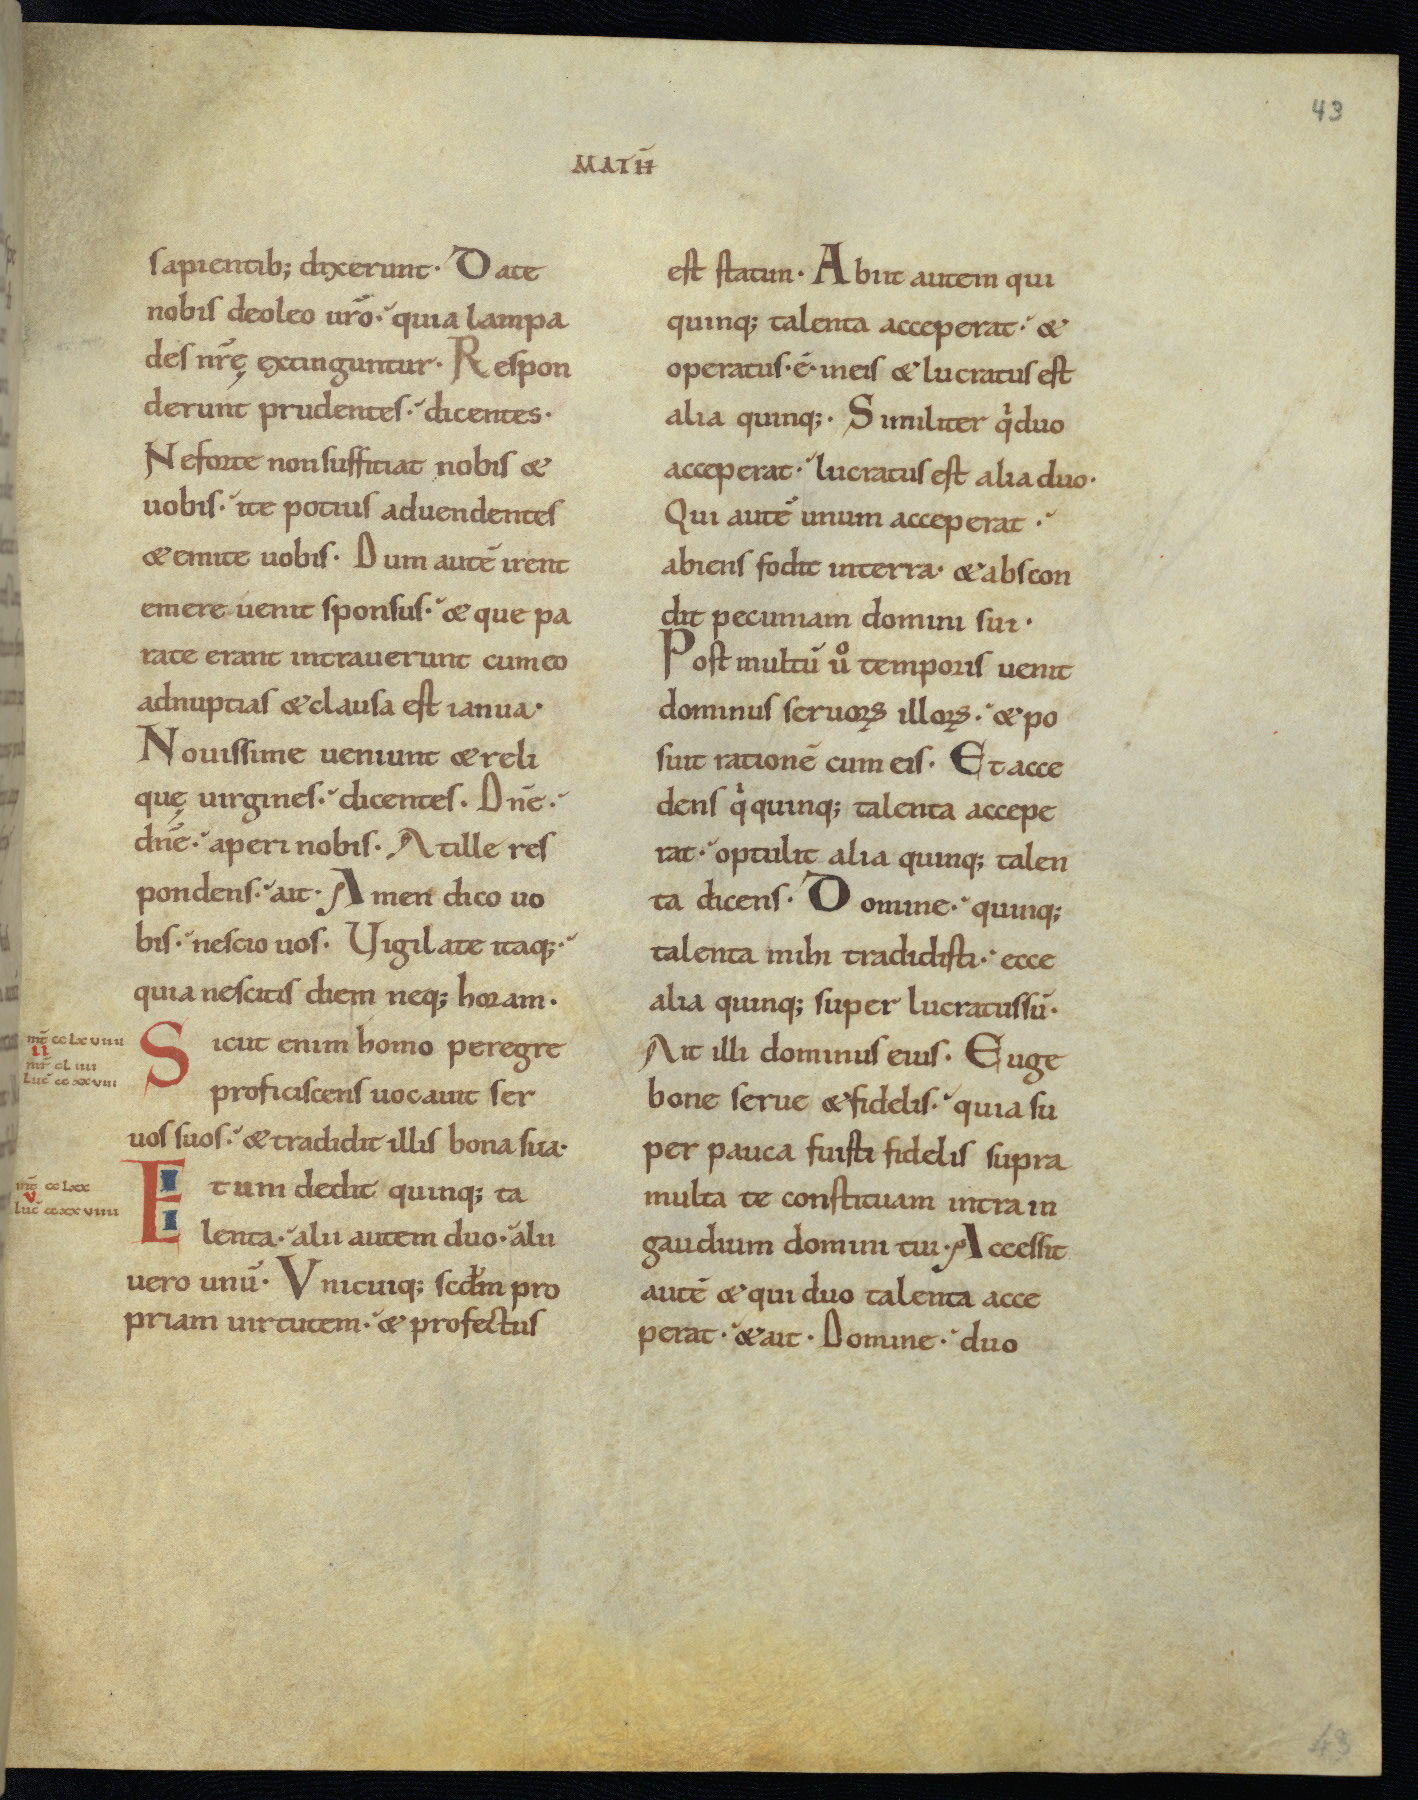 43
MATH̄
sapientib; dixerunt· Date
nobis deoleo ur̄o· quia lampa
des nr̄ę extinguntur· Respon
derunt prudentes· dicentes·
Neforte nonsufficiat nobis &
uobis· ite potius aduendentes
& emite uobis· Dum autē irent
emere uenit sponsus· & que pa
rate erant intrauerunt cumeo
adnuptias & clausa est ianua·
Nouissime ueniunt & reli
quę uirgines· dicentes· Dn̄e·
dn̄e· aperi nobis· Atille res
pondens· ait· Amen dico uo
bis· nescio uos· Uigilate itaq;·
quia nescitis diem neq; horam·
mt̄ cclxviiii
ii
mr̄ cliiii
Luc̄ ccxxviii
Sicut enim homo peregre
proficiscens uocauit ser
uos suos· & tradidit illis bona sua·
mt̄ cclxx
v
Luc̄ ccxxviiii
Et um dedit quinq; ta
lenta· alii autem duo· alii
uero unū· Vnicuiq; scdm̄ pro
priam uirtutem· & profectus
est statim· Abiit autem qui
quinq; talenta acceperat· &
operatus·ē· ineis & lucratus est
alia quinq;· Similiter qͥ duo
acceperat· lucratus est alia duo·
Qui autē unum acceperat·
abiens fodit interra· & abscon
dit pecuniam domini sui·
Post multū uͦ temporis uenit
dominus seruoꝝ illoꝝ· & po
suit rationē cum eis· Et acce
dens qͥ quinq; talenta accepe
rat· optulit alia quinq; talen
ta dicens· Domine· quinq;
talenta mihi tradidisti· ecce
alia quinq; super lucratussū·
Ait illi dominus eius· Euge
bone serue & fidelis· quia su
per pauca fuisti fidelis supra
multa te constituam intra in
gaudium domini tui· Accessit
autē & qui duo talenta acce
perat· & ait· Domine· duo
43